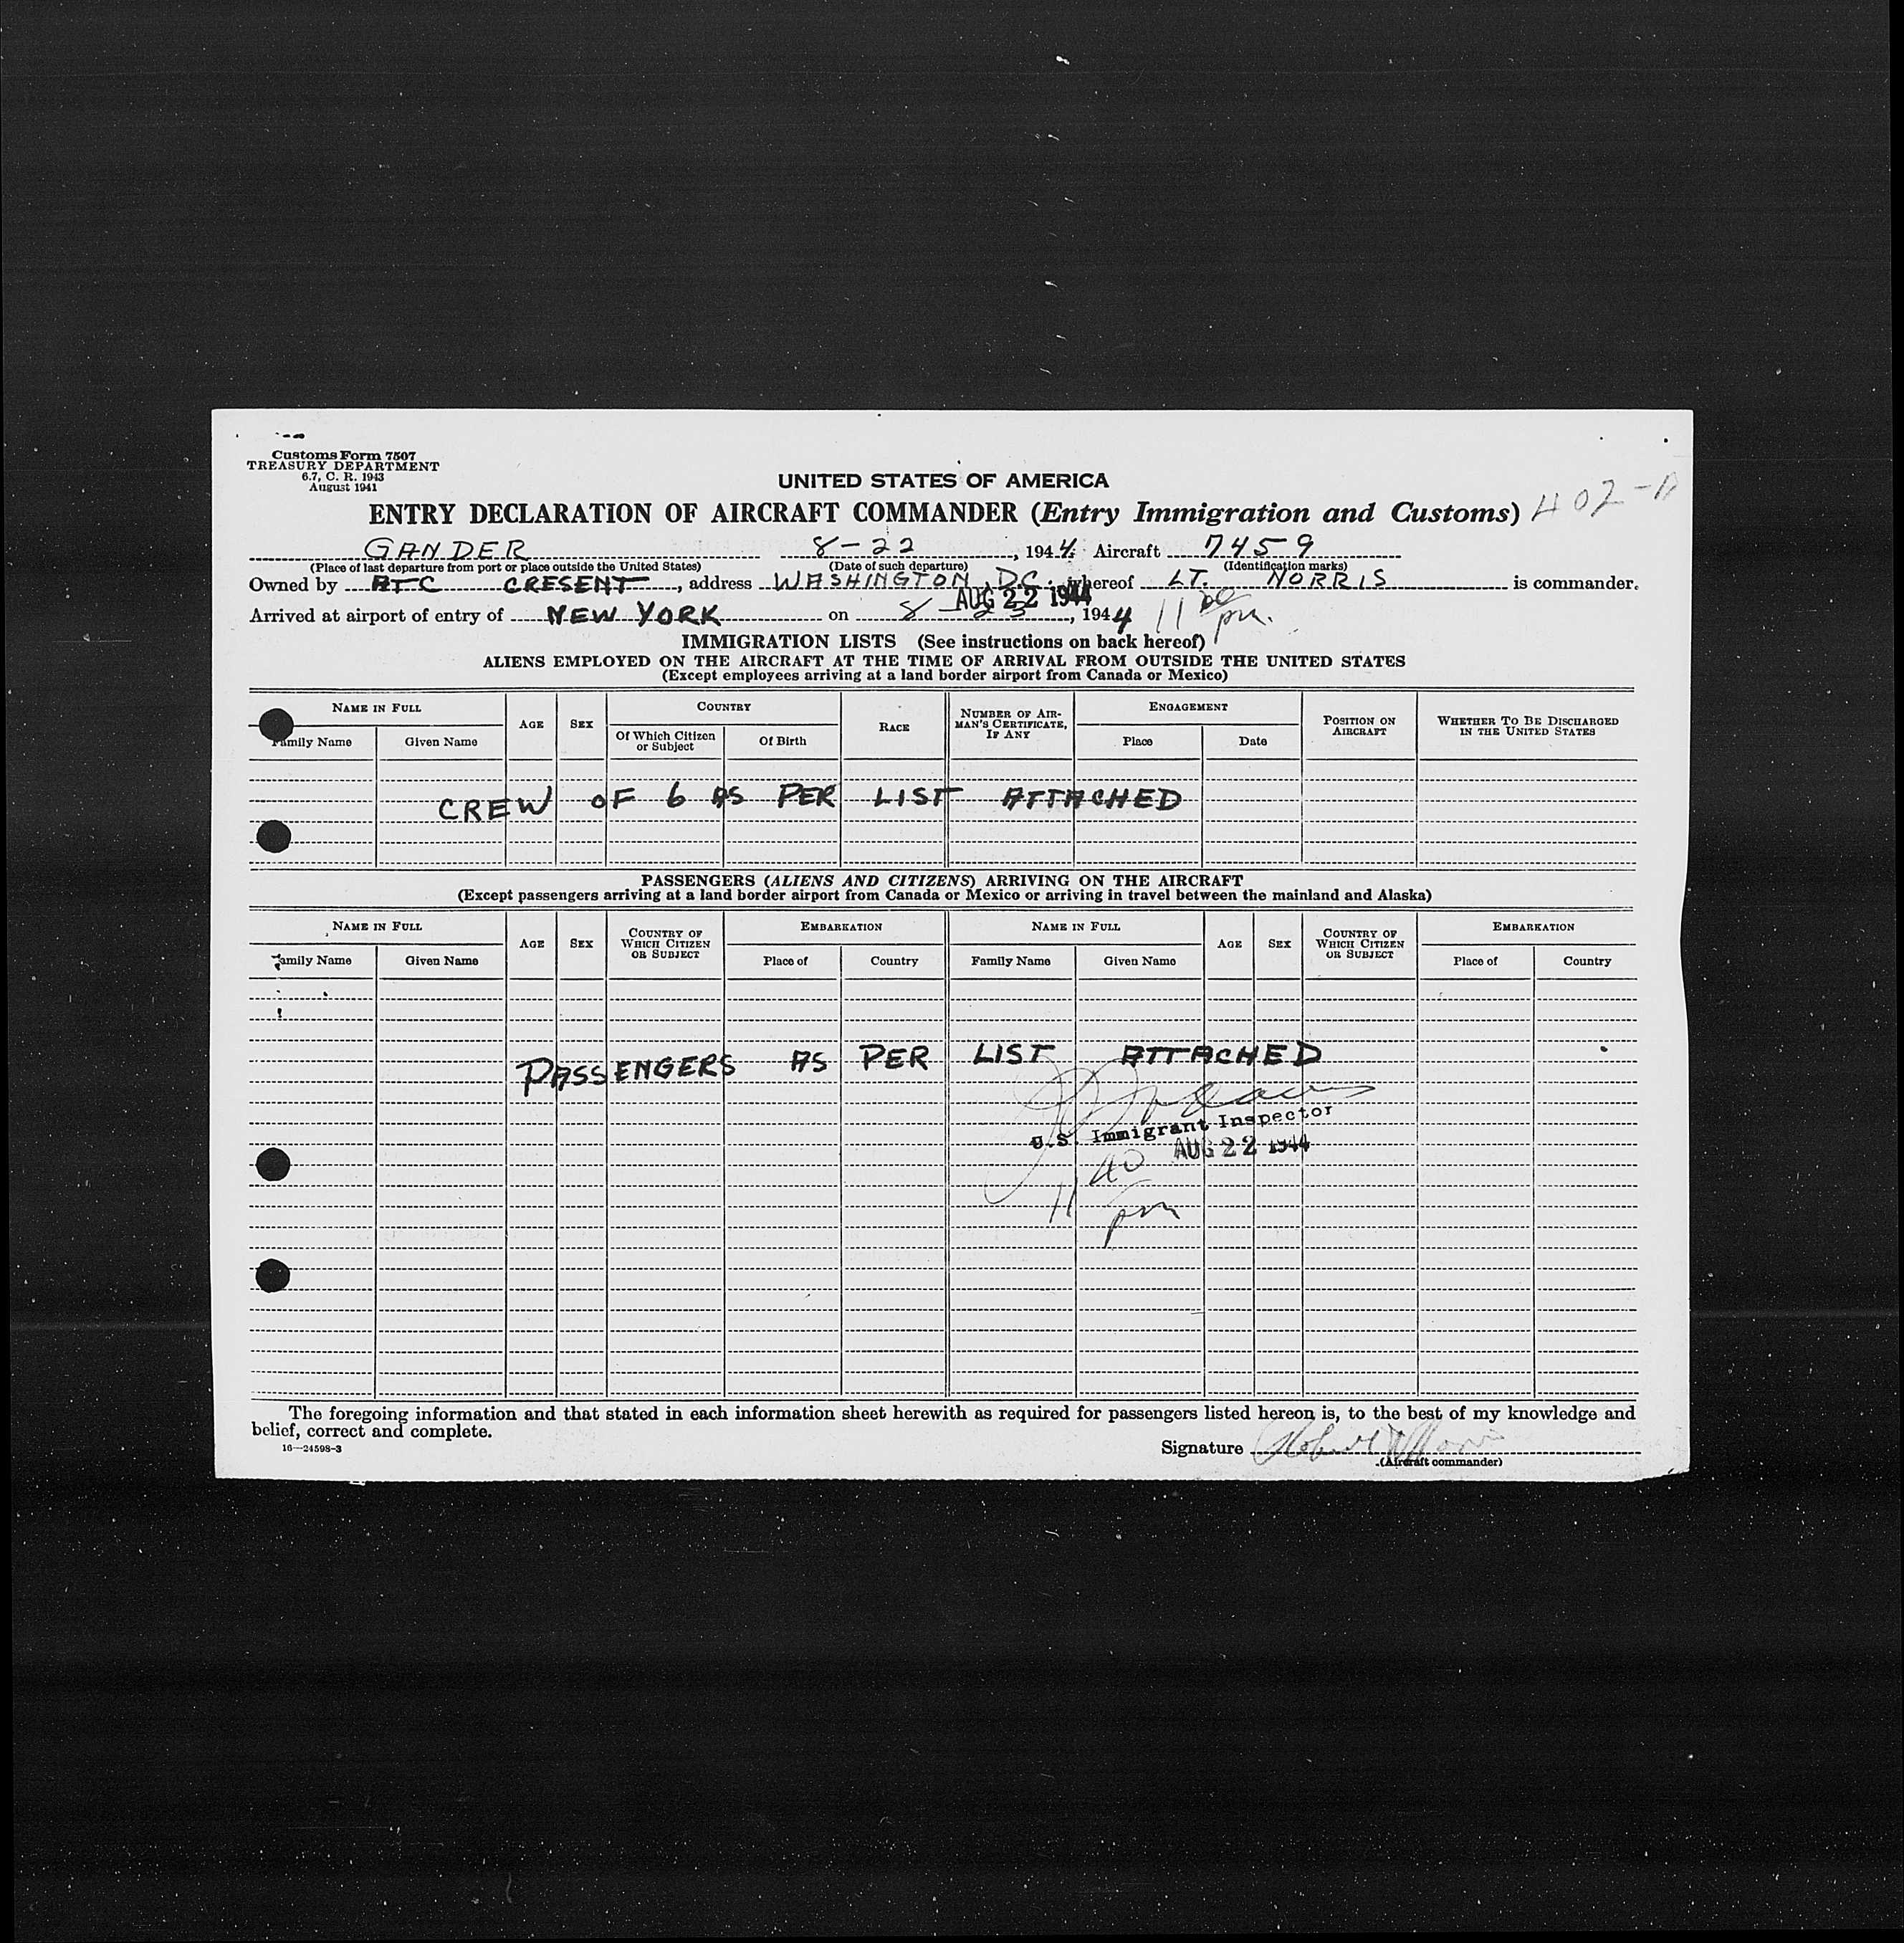 Customs Form 7507
TREASURY DEPARTMENT
6.7, C. R. 1943
August 1941
UNITED STATES OF AMERICA
ENTRY DECLARATION OF AIRCRAFT COMMANDER (Entry Immigration and Customs) 402-A
GANDER 8-22, 1944 Aircraft 7459
(Place of last departure from port or place outside the United States) (Date of such departure) (Identification marks)
Owned by ATC CRESENT, address WASHINGTON, D.C. whereof LT. NORRIS is commander.
AUG 22 1944
Arrived at airport of entry of NEW YORK on 8-23, 1944 11 00 pm.
IMMIGRATION LISTS (See instructions on back hereof)
ALIENS EMPLOYED ON THE AIRCRAFT AT THE TIME OF ARRIVAL FROM OUTSIDE THE UNITED STATES
(Except employees arriving at a land border airport from Canada or Mexico)
NAME IN FULL AGE SEX COUNTRY RACE NUMBER OF AIRMAN'S CERTIFICATE, IF ANY ENGAGEMENT POSITION ON AIRCRAFT WHETHER TO BE DISCHARGED IN THE UNITED STATES
Family Name Given Name Of Which Citizen or Subject Of Birth Place Date
CREW OF 6 AS PER LIST ATTACHED
PASSENGERS (ALIENS AND CITIZENS) ARRIVING ON THE AIRCRAFT
(Except passengers arriving at a land border airport from Canada or Mexico or arriving in travel between the mainland and Alaska)
NAME IN FULL AGE SEX COUNTRY OF WHICH CITIZEN OR SUBJECT EMBARKATION NAME IN FULL AGE SEX COUNTRY OF WHICH CITIZEN OR SUBJECT EMBARKATION
Family Name Given Name Place of Country Family Name Given Name Place of Country
PASSENGERS AS PER LIST ATTACHED
U.S. Immigrant Inspector
AUG 22 1944
11 40 pm
The foregoing information and that stated in each information sheet herewith as required for passengers listed hereon is, to the best of my knowledge and
belief, correct and complete.
16—24598-3
Signature
(Aircraft commander)